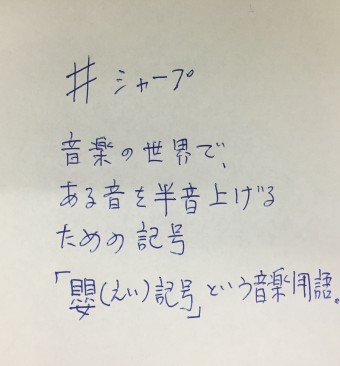 # シャープ
音楽の世界で、
ある音を半音上げる
ための記号
「嬰(えい)記号」という音楽用語。